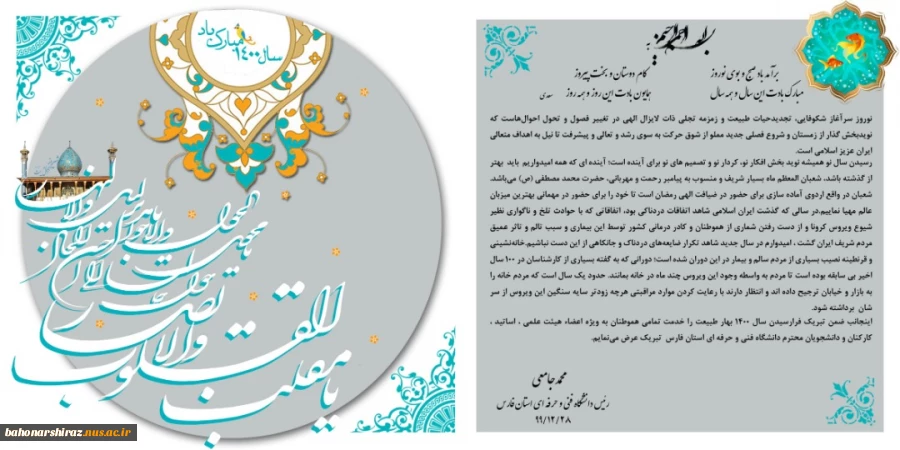 سال ۱۴۰۰ مبارک باد
یا مقلب القلوب والابصار
bahonarshiraz.nus.ac.ir
به
بسم الله الرحمن الرحیم
برآمد باد صبح و بوی نوروز
کام دوستان و بخت پیروز
مبارک بادت این سال و همه سال
همایون بادت این روز و همه روز
سعدی
نوروز سرآغاز شکوفایی، تجدیدحیات طبیعت و زمزمه تجلی ذات لایزال الهی در تغییر فصول و تحول احوال‌هاست که
نویدبخش گذار از زمستان و شروع فصلی جدید مملو از شوق حرکت به سوی رشد و تعالی و پیشرفت تا نیل به اهداف متعالی
ایران عزیز اسلامی است.
رسیدن سال نو همیشه نوید بخش افکار نو، کردار نو و تصمیم های نو برای آینده است؛ آینده ای که همه امیدواریم باید بهتر
از گذشته باشد. شعبان المعظم ماه بسیار شریف و منسوب به پیامبر رحمت و مهربانی، حضرت محمد مصطفی (ص) می‌باشد.
شعبان در واقع اردوی آماده سازی برای حضور در ضیافت الهی رمضان است تا خود را برای حضور در مهمانی بهترین میزبان
عالم مهیا نماییم.در سالی که گذشت ایران اسلامی شاهد اتفاقات دردناکی بود، اتفاقاتی که با حوادث تلخ و ناگواری نظیر
شیوع ویروس کرونا و از دست رفتن شماری از هموطنان و کادر درمانی کشور توسط این بیماری و سبب تالم و تاثر عمیق
مردم شریف ایران گشت ، امیدوارم در سال جدید شاهد تکرار ضایعه‌های دردناک و جانکاهی از این دست نباشیم.خانه‌نشینی
و قرنطینه نصیب بسیاری از مردم سالم و بیمار در این دوران شده است؛ دورانی که به گفته بسیاری از کارشناسان در ۱۰۰ سال
اخیر بی سابقه بوده است تا مردم به واسطه وجود این ویروس چند ماه در خانه بمانند. حدود یک سال است که مردم خانه را
به بازار و خیابان ترجیح داده اند و انتظار دارند با رعایت کردن موارد مراقبتی هرچه زودتر سایه سنگین این ویروس از سر
شان برداشته شود.
اینجانب ضمن تبریک فرارسیدن سال ۱۴۰۰ بهار طبیعت را خدمت تمامی هموطنان به ویژه اعضاء هیئت علمی ، اساتید ،
کارکنان و دانشجویان محترم دانشگاه فنی و حرفه ای استان فارس تبریک عرض می‌نمایم.
محمد جامعی
رئیس دانشگاه فنی و حرفه ای استان فارس
۹۹/۱۲/۲۸